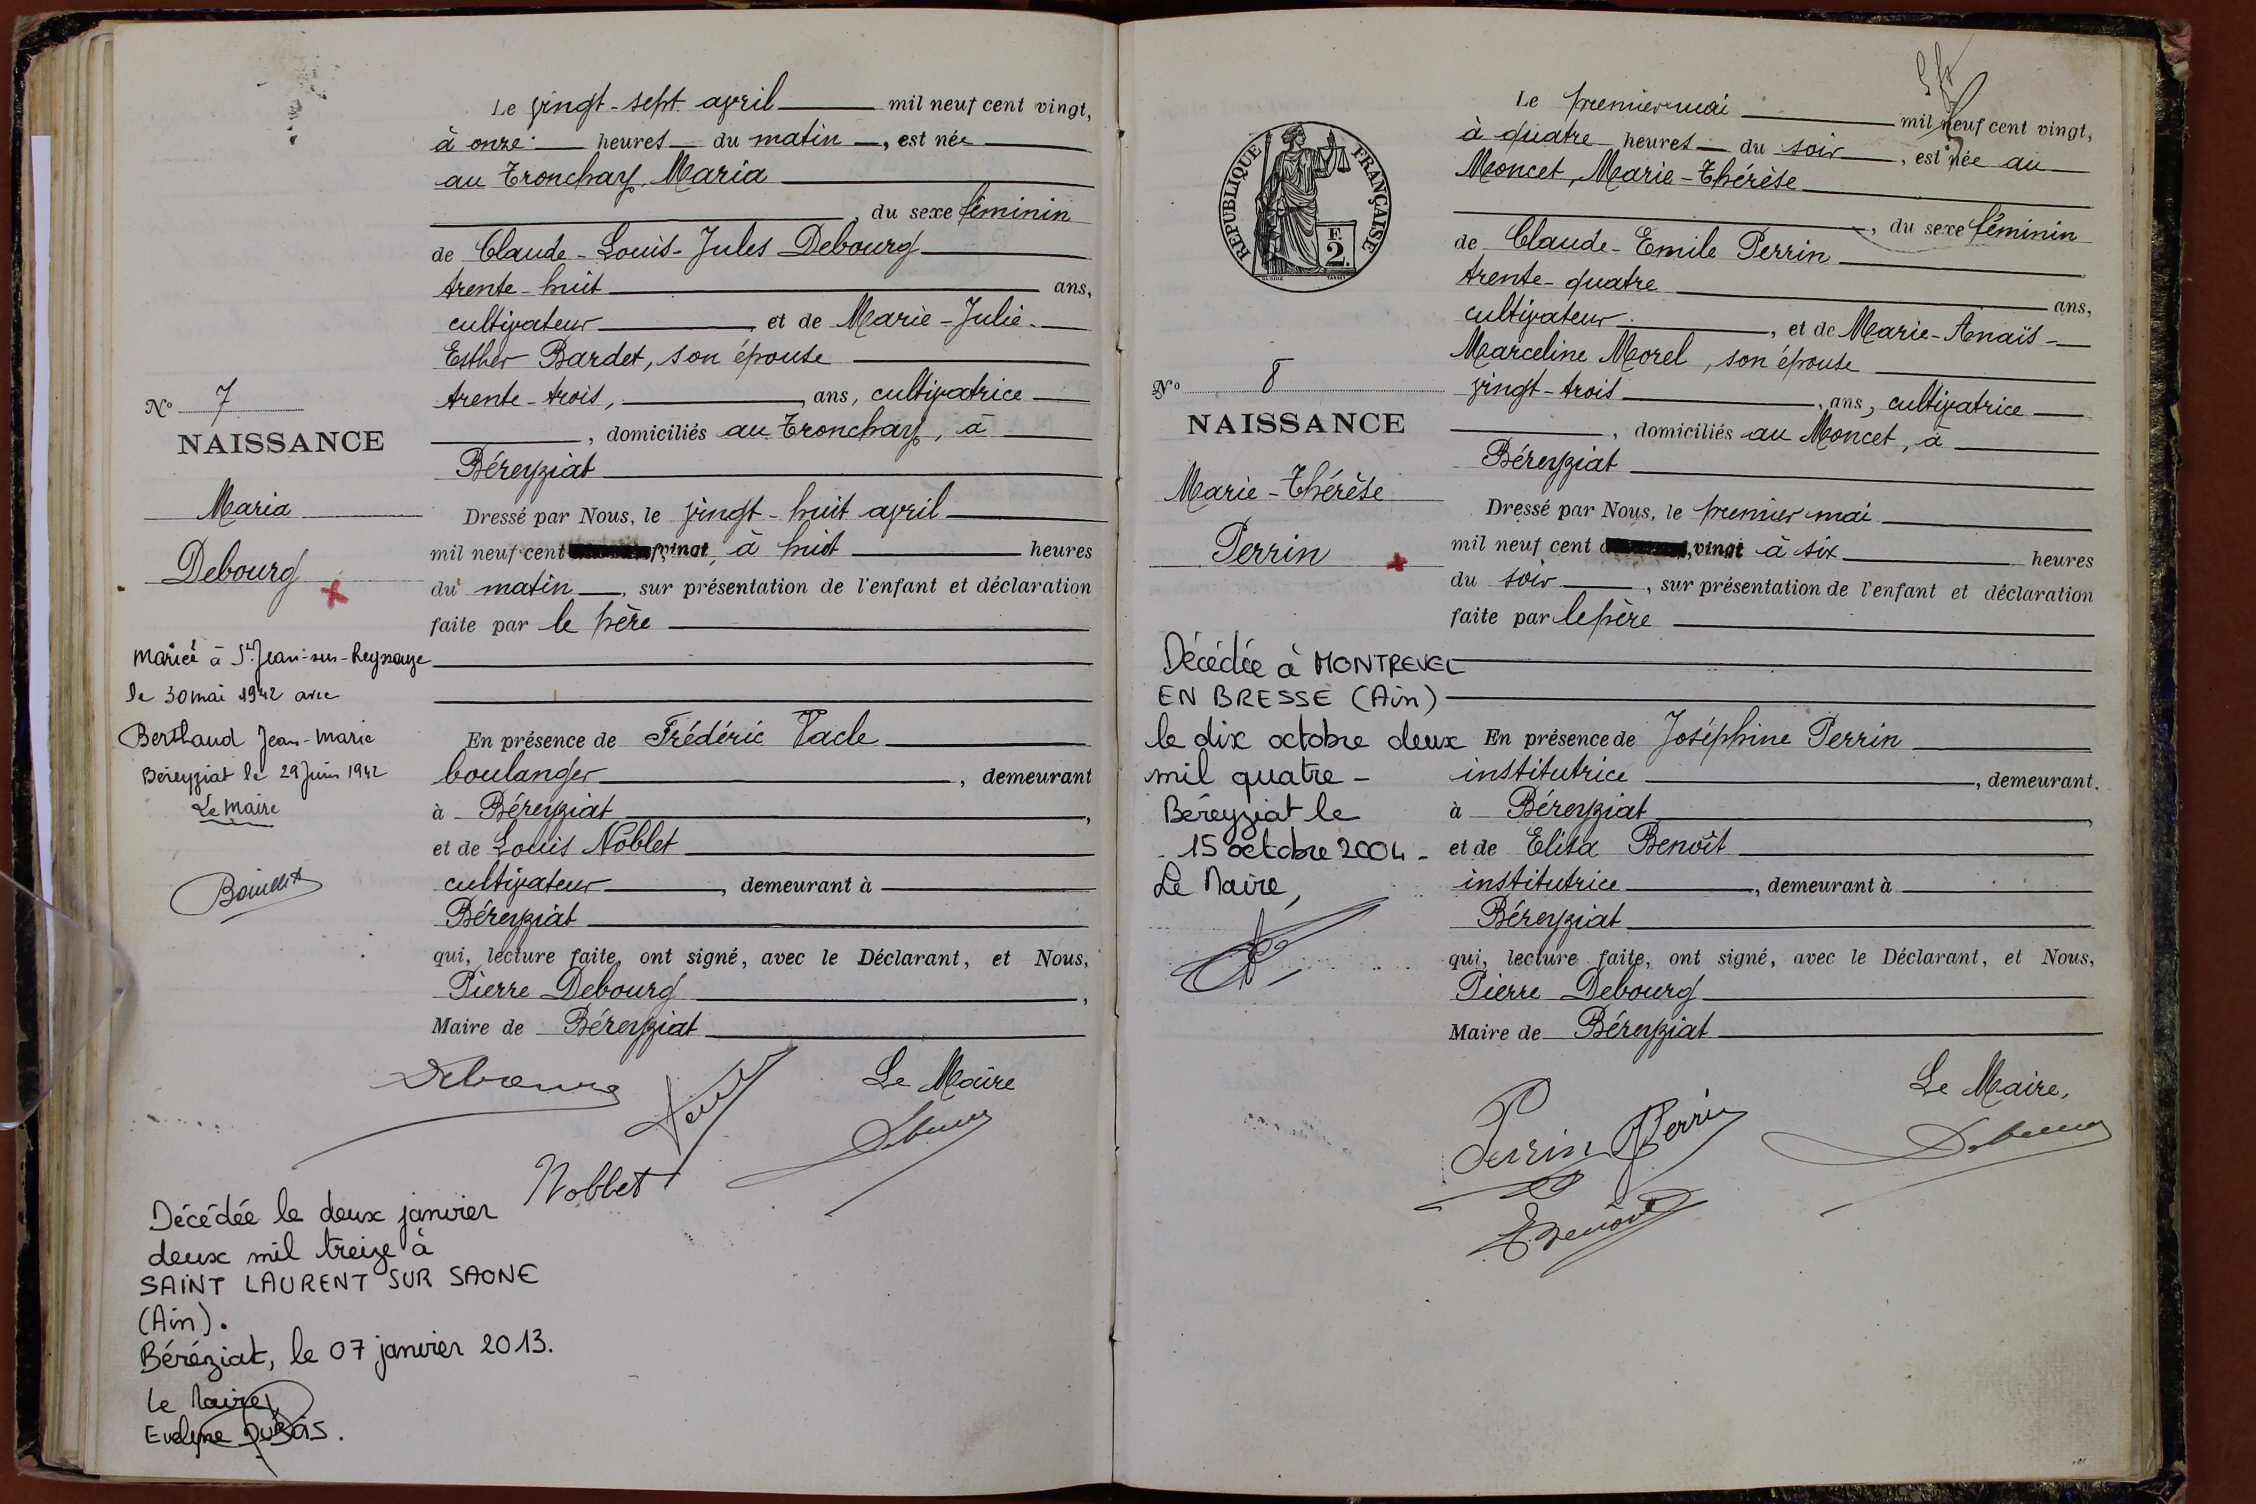 Le vingt-sept avril mil neuf cent vingt,
à onze heures du matin, est née
au Tronchay, Maria
, du sexe féminin
de Claude-Louis-Jules Debourg
trente-huit ans,
cultivateur, et de Marie-Julie-
Esther Bardet, son épouse
trente-trois, ans, cultivatrice
, domiciliés au Tronchay, à
Béreyziat
Dressé par Nous, le vingt-huit avril
mil neuf cent vingt, à huit heures
du matin, sur présentation de l'enfant et déclaration
faite par le père
En présence de Frédéric Vacle
boulanger, demeurant
à Béreyziat,
et de Louis Noblet
cultivateur, demeurant à
Béreyziat
qui, lecture faite, ont signé, avec le Déclarant, et Nous,
Pierre Debourg,
Maire de Béreyziat
Le Maire
Debourg
Noblet
N° 7
NAISSANCE
Maria
Debourg
Mariée à St Jean-sur-Reyssouze
le 30 mai 1942 avec
Berthaud Jean-Marie
Béreyziat le 29 Juin 1942
Le Maire
Décédée le deux janvier
deux mil treize à
SAINT LAURENT SUR SAONE
(Ain).
Béréziat, le 07 janvier 2013.
Le Maire,
Evelyne DUBOIS.
Le premier mai mil neuf cent vingt,
à quatre heures du soir, est née au
Moncet, Marie-Thérèse
, du sexe féminin
de Claude-Emile Perrin
trente-quatre ans,
cultivateur, et de Marie-Anaïs-
Marceline Morel, son épouse
vingt-trois, ans, cultivatrice
, domiciliés au Moncet, à
Béreyziat
Dressé par Nous, le premier mai
mil neuf cent vingt à six heures
du soir, sur présentation de l'enfant et déclaration
faite par le père
En présence de Joséphine Perrin
institutrice, demeurant
à Béreyziat,
et de Elisa Benoît
institutrice, demeurant à
Béreyziat
qui, lecture faite, ont signé, avec le Déclarant, et Nous,
Pierre Debourg
Maire de Béreyziat
Le Maire,
Perrin Perrin
E. Benoît
RÉPUBLIQUE FRANÇAISE
F.
2.
N° 8
NAISSANCE
Marie-Thérèse
Perrin
Décédée à MONTREVEL
EN BRESSE (Ain)
le dix octobre deux
mil quatre -
Béreyziat le
- 15 octobre 2004 -
Le Maire,